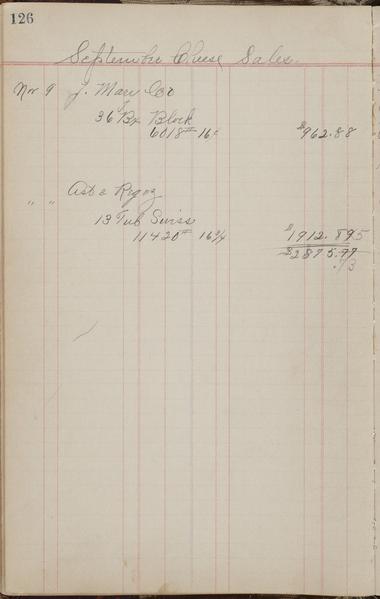 126
September Cheese Sales.
Nov 9 J. Marx Co
36 Bx Block
6018# 16¢ $962.88
" "
13 Tub Swiss
11420# 16¾ $1912.895
$2875.77
.73